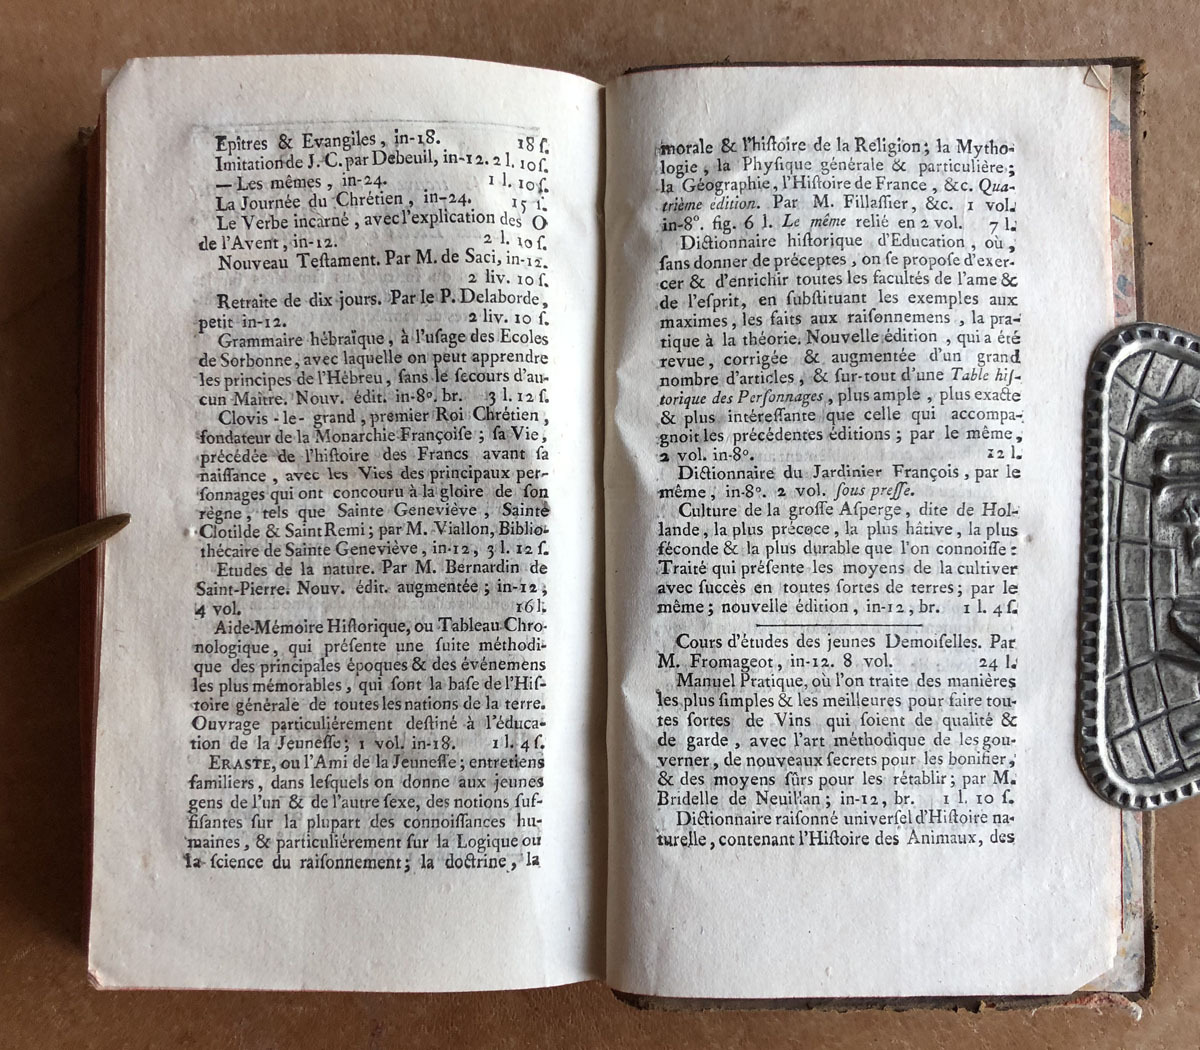 Epîtres & Evangiles, in-18. 18 ſ.
Imitation de J. C. par Debeuil, in-12. 2 l. 10 ſ.
— Les mêmes, in-24. 1 l. 10 ſ.
La Journée du Chrétien, in-24. 15 ſ.
Le Verbe incarné, avec l'explication des O
de l'Avent, in-12. 2 l. 10 ſ.
Nouveau Teſtament. Par M. de Saci, in-12.
2 liv. 10 ſ.
Retraite de dix jours. Par le P. Delaborde,
petit in-12. 2 liv. 10 ſ.
Grammaire hébraïque, à l'uſage des Ecoles
de Sorbonne, avec laquelle on peut apprendre
les principes de l'Hébreu, ſans le ſecours d'au-
cun Maître. Nouv. édit. in-8°. br. 3 l. 12 ſ.
Clovis-le-grand, premier Roi Chrétien,
fondateur de la Monarchie Françoiſe; ſa Vie,
précédée de l'hiſtoire des Francs avant ſa
naiſſance, avec les Vies des principaux per-
ſonnages qui ont concouru à la gloire de ſon
règne, tels que Sainte Geneviève, Sainte
Clotilde & Saint Remi; par M. Viallon, Biblio-
thécaire de Sainte Geneviève, in-12, 3 l. 12 ſ.
Etudes de la nature. Par M. Bernardin de
Saint-Pierre. Nouv. édit. augmentée; in-12,
4 vol. 16 l.
Aide-Mémoire Hiſtorique, ou Tableau Chro-
nologique, qui préſente une ſuite méthodi-
que des principales époques & des événemens
les plus mémorables, qui ſont la baſe de l'Hiſ-
toire générale de toutes les nations de la terre.
Ouvrage particuliérement deſtiné à l'éduca-
tion de la Jeuneſſe; 1 vol. in-18. 1 l. 4 ſ.
ERASTE, ou l'Ami de la Jeuneſſe; entretiens
familiers, dans leſquels on donne aux jeunes
gens de l'un & de l'autre ſexe, des notions ſuf-
fiſantes ſur la plupart des connoiſſances hu-
maines, & particuliérement ſur la Logique ou
la ſcience du raiſonnement; la doctrine, la
morale & l'hiſtoire de la Religion; la Mytho-
logie, la Phyſique générale & particulière;
la Géographie, l'Hiſtoire de France, &c. Qua-
trième édition. Par M. Fillaſſier, &c. 1 vol.
in-8°. fig. 6 l. Le même relié en 2 vol. 7 l.
Dictionnaire hiſtorique d'Education, où,
ſans donner de préceptes, on ſe propoſe d'exer-
cer & d'enrichir toutes les facultés de l'ame &
de l'eſprit, en ſubſtituant les exemples aux
maximes, les faits aux raiſonnemens, la pra-
tique à la théorie. Nouvelle édition, qui a été
revue, corrigée & augmentée d'un grand
nombre d'articles, & ſur-tout d'une Table hiſ-
torique des Perſonnages, plus ample, plus exacte
& plus intéreſſante que celle qui accompa-
gnoit les précédentes éditions; par le même,
2 vol. in-8°. 12 l.
Dictionnaire du Jardinier François, par le
même, in-8°. 2 vol. ſous preſſe.
Culture de la groſſe Aſperge, dite de Hol-
lande, la plus précoce, la plus hâtive, la plus
féconde & la plus durable que l'on connoiſſe:
Traité qui préſente les moyens de la cultiver
avec ſuccès en toutes ſortes de terres; par le
même; nouvelle édition, in-12, br. 1 l. 4 ſ.
Cours d'études des jeunes Demoiſelles. Par
M. Fromageot, in-12. 8 vol. 24 l.
Manuel Pratique, où l'on traite des manières
les plus ſimples & les meilleures pour faire tou-
tes ſortes de Vins qui ſoient de qualité &
de garde, avec l'art méthodique de les gou-
verner, de nouveaux ſecrets pour les bonifier,
& des moyens ſûrs pour les rétablir; par M.
Bridelle de Neuillan; in-12, br. 1 l. 10 ſ.
Dictionnaire raiſonné univerſel d'Hiſtoire na-
turelle, contenant l'Hiſtoire des Animaux, des